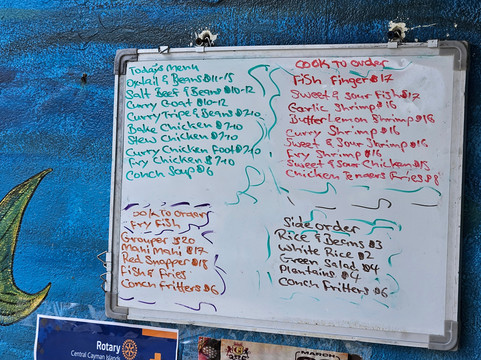 Today's Menu
Oxtail & Beans $11-15
Salt Beef & Beans $10-12
Curry Goat $10-12
Curry Tripe & Beans $7-10
Bake Chicken $7-10
Stew Chicken $7-10
Curry Chicken Foot $7-10
Fry Chicken $7-10
Conch Soup $6
Cook To Order
Fish Finger $17
Sweet & Sour Fish $17
Garlic Shrimp $16
Butter Lemon Shrimp $16
Curry Shrimp $16
Sweet & Sour Shrimp $16
Fry Shrimp $16
Sweet & Sour Chicken $15
Chicken Tenders Fries $8
Cook To Order
Fry Fish
Grouper $20
Mahi Mahi $17
Red Snapper $18
Fish & Fries
Conch Fritters $6
Side Order
Rice & Beans $3
White Rice $2
Green Salad $4
Plantains $4
Conch Fritters $6
Rotary
Central Cayman Islands
MARCH